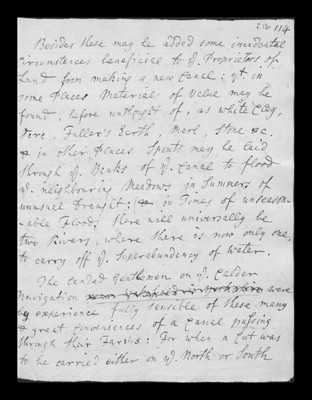 114
Besides these may be added some incidental
Circumstances beneficial to yͤ Proprietors of
Land from making a new Canal: yͭ in
some Places Materials of Value may be
found, before unthought of, as white Clay,
Fuller's Earth, Marl, Stone &c.
& in other Places Spouts may be laid
through yͤ Banks of yͤ Canal to flood
yͤ neighbouring Meadows in Summers of
unusual Drought; & in Times of unseason-
-able Floods there will universally be
two Rivers, where there is now only one,
to carry off yͤ Superabundancy of Water.
The landed Gentlemen on yͤ Calder
Navigation near Wakefield in Yorkshire were
by experience fully sensible of these many
& great Conveniences of a Canal passing
through their Farms: For when a Cut was
to be carried either on yͤ North or South